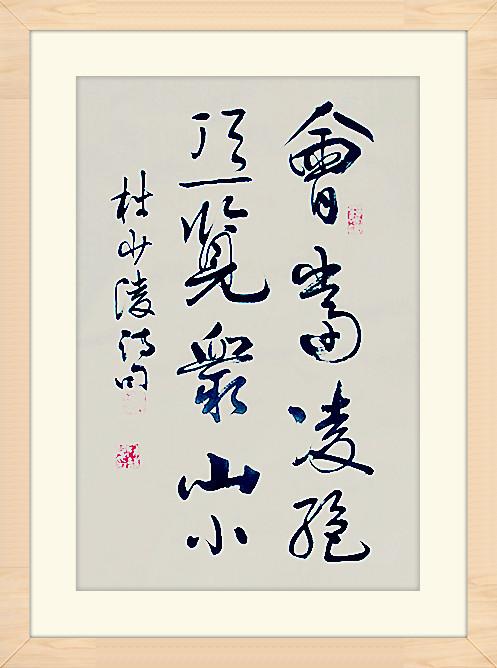 會當凌絕
頂一覽衆山小
杜少陵詩句